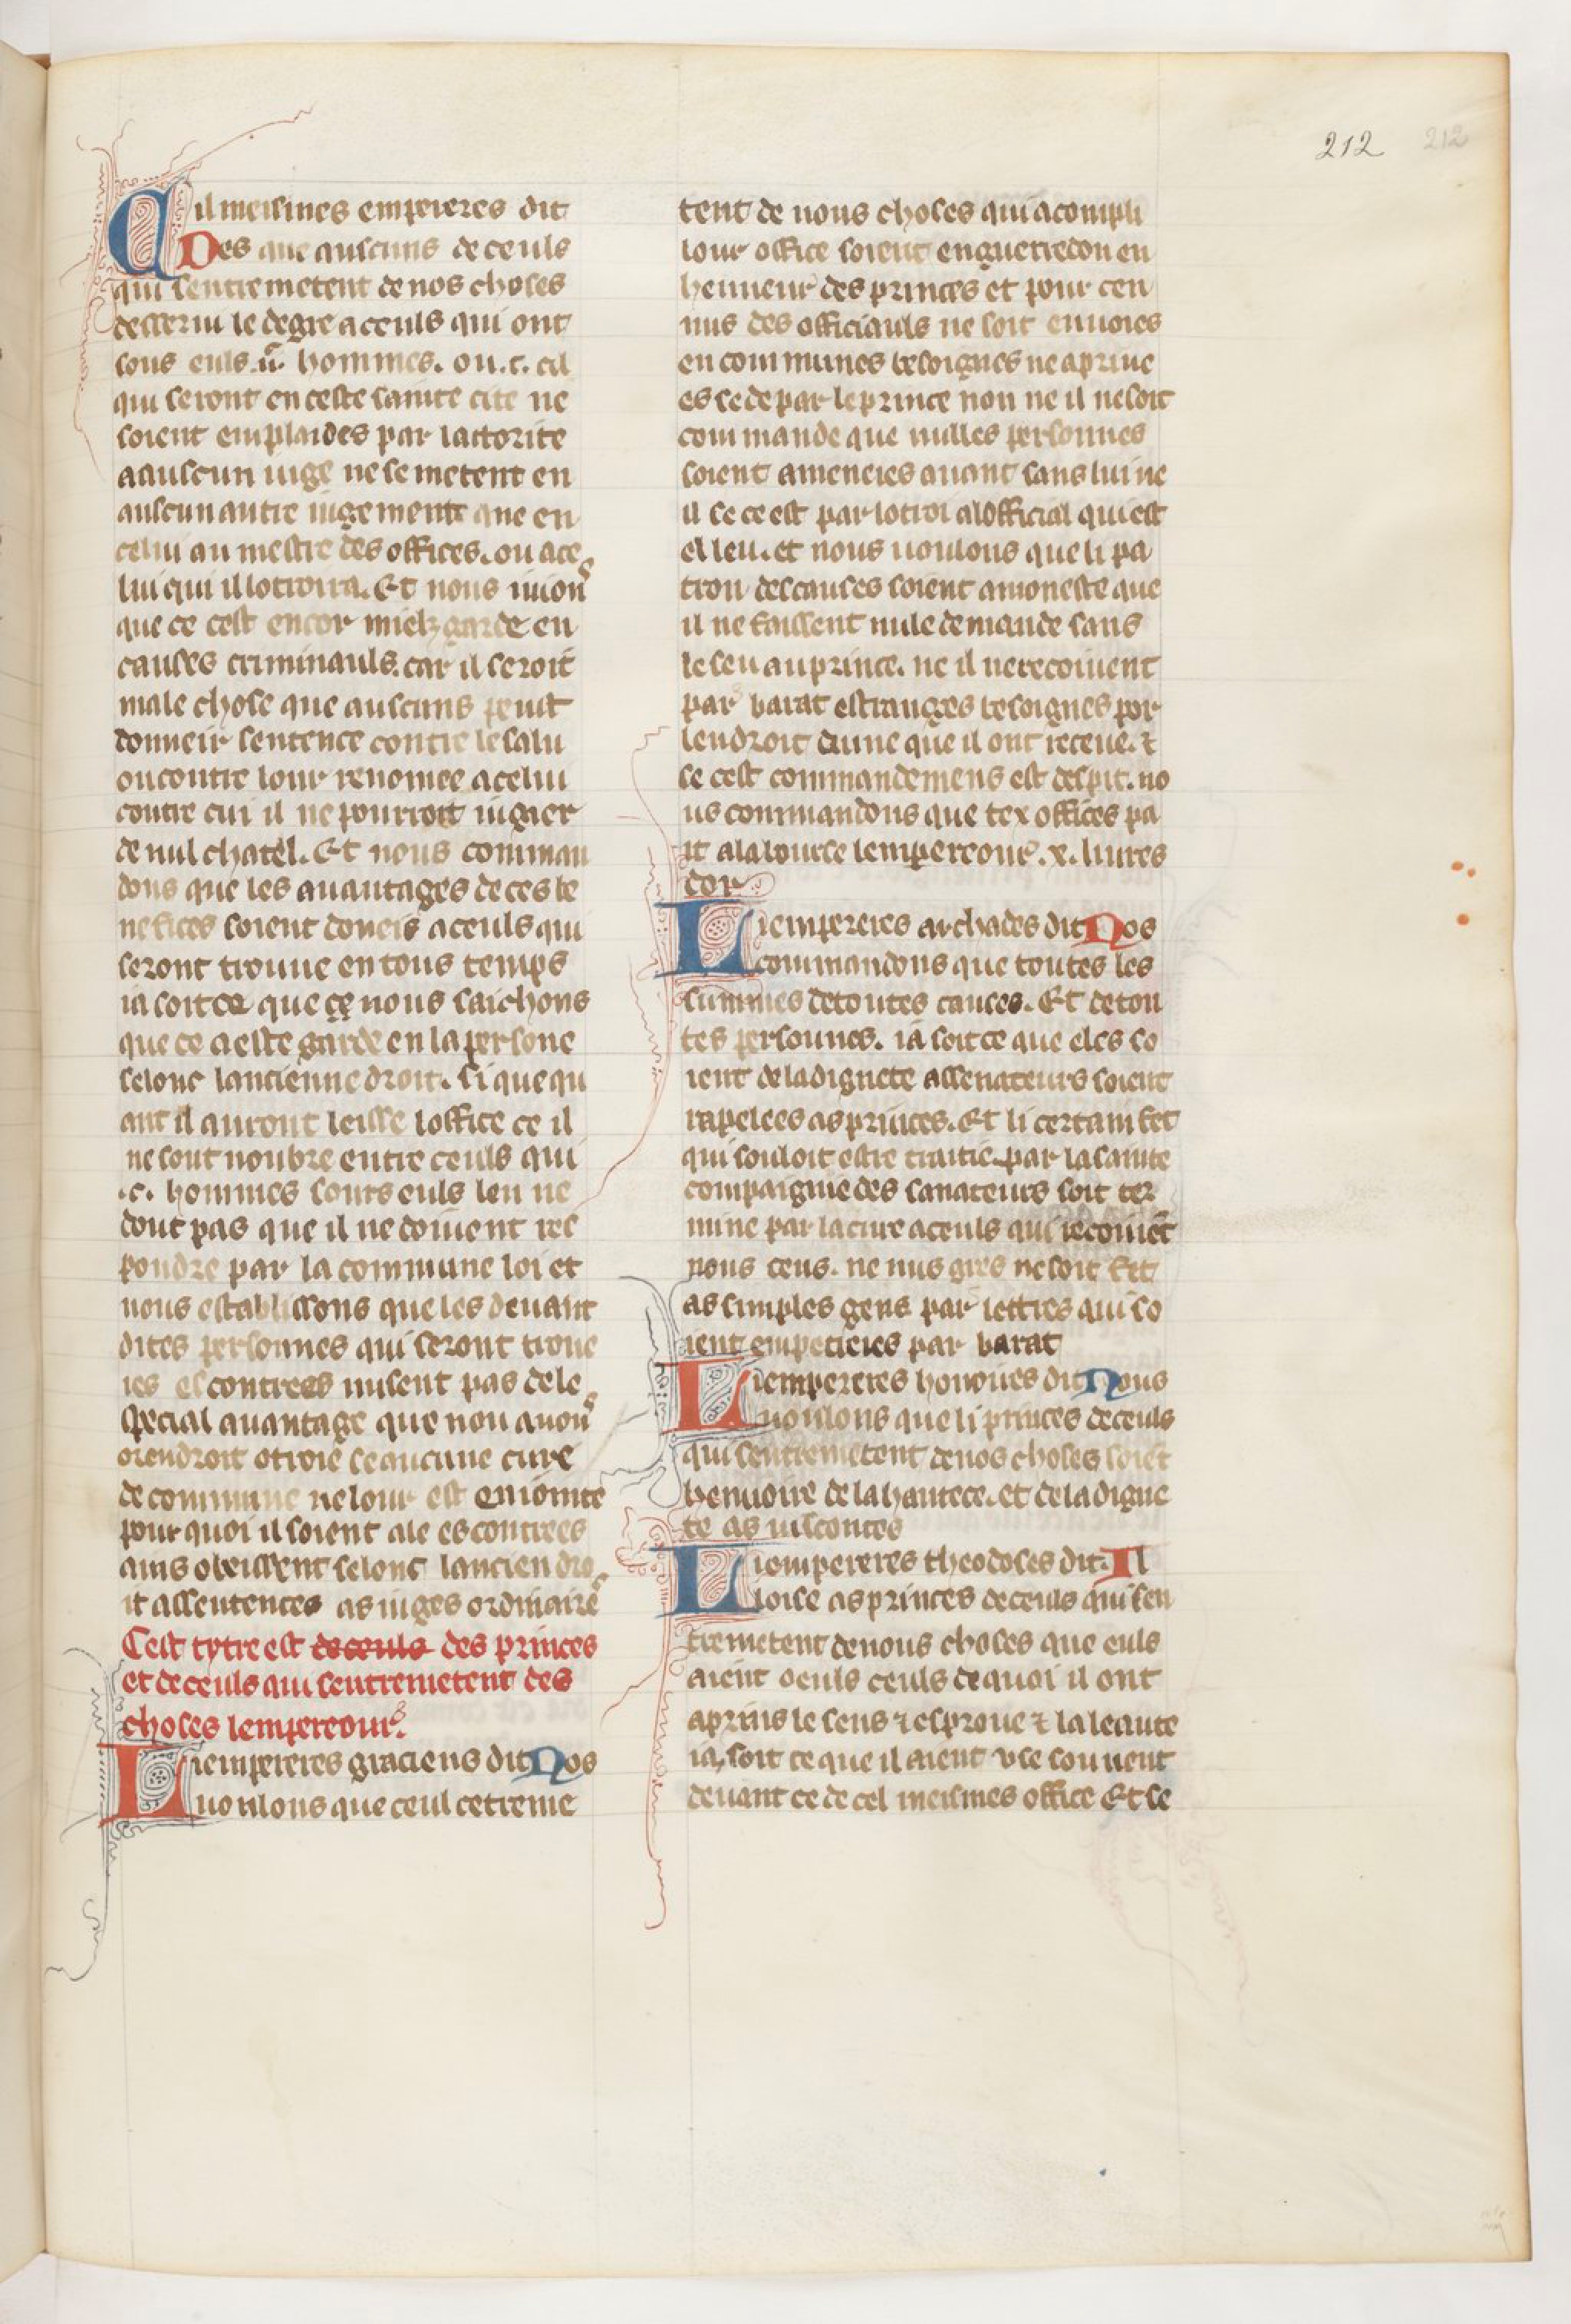 212
Cil meismes empereres dit
Des que auscuns de ceuls
qui sentremetent de nos choses
desserui le degre a ceuls qui ont
sous euls .ii.c hommes. ou .c. cil
qui seront en ceste sainte cite ne
soient emplaides par lactorite
a auscun iuge ne se metent en
auscun autre iugement que en
celui au mestre des offices. ou a ce
lui qui il lotroira. Et nous
que ce cest encor mielz garde en
causes criminauls. car il seroit
male chose que auscuns peust
donneir sentence contre le salu
ou contre lour renomee a celui
contre cui il ne pourroit iugier
de nul chatel. Et nous comman
dons que les auantages de ces be
nefices soient doneis a ceuls qui
seront trouue en tous temps
ia soit ce que ce nous saichons
que ce a este garde en la persone
selonc lancienne droit. si que qu
ant il auront leisse loffice ce il
ne sont noubre entre ceuls qui
.c. hommes sours euls len ne
dout pas que il ne doiuent res
pondre par la commune loi et
nous establissons que les deuant
dites personnes qui seront troue
ies es contrees nusent pas de le
special auantage que nou auons
orendroit otroie se aucune cure
de commune ne lour est eniointe
pour quoi il soient ale es contrees
ains obeissent selonc lancien dro
it as sentences as iuges ordinaires
Cest tytre est de ceuls des princes
et de ceuls qui sentremetent des
choses lempereour.
Li empereres graciens dit Nos
uoulons que ceul cetreme
tent de nous choses qui acompli
lour office soient enguerredon en
henneur des princes et pour cen
nus des officiauls ne soit enuoies
en communes besoignes ne a priue
es se de par le prince non ne il ne soit
commande que nulles personnes
soient ameneies auant sans lui ne
il se ce est par lotroi a lofficial qui est
esleu. et nous uoulons que li pa
tron des causes soient amoneste que
il ne faissent nule demande sans
le seu au prince. ne il ne recoiuent
par barat estranges besoignes por
lendroit dune que il ont receue. ⁊
se cest commandemens est despit. no
us commandons que tex offices pa
it a la bourse lempereour .x. liures
dor
Li empereres archades dit Nos
commandons que toutes les
summes de toutes causes. Et de tou
tes persounes. ia soit ce que eles so
ient de la dignete as senateurs soient
rapelees as princes. Et li certain fet
qui souloit estre traitie par la sainte
compaignie des sanateurs soit ter
mine par la cure a ceuls qui recoiuēt
nous cens. ne nus gries ne soit fet
as simples gens par lettres qui so
ient empetreies par barat
Li empereres honoures dit Nous
uoulons que li princes de ceuls
qui sentremetent de nos choses soiēt
henuoire de la hautece. et de la digne
te as uiscontes
Li empereres theodoses dit. Il
loise as princes de ceuls qui sen
tremetent de nous choses que euls
aient oeuls ceuls de quoi il ont
aprins le sens ⁊ esproue ⁊ la leaute
ia soit ce que il aient vse souuent
deuant ce de cel meismes office Et se